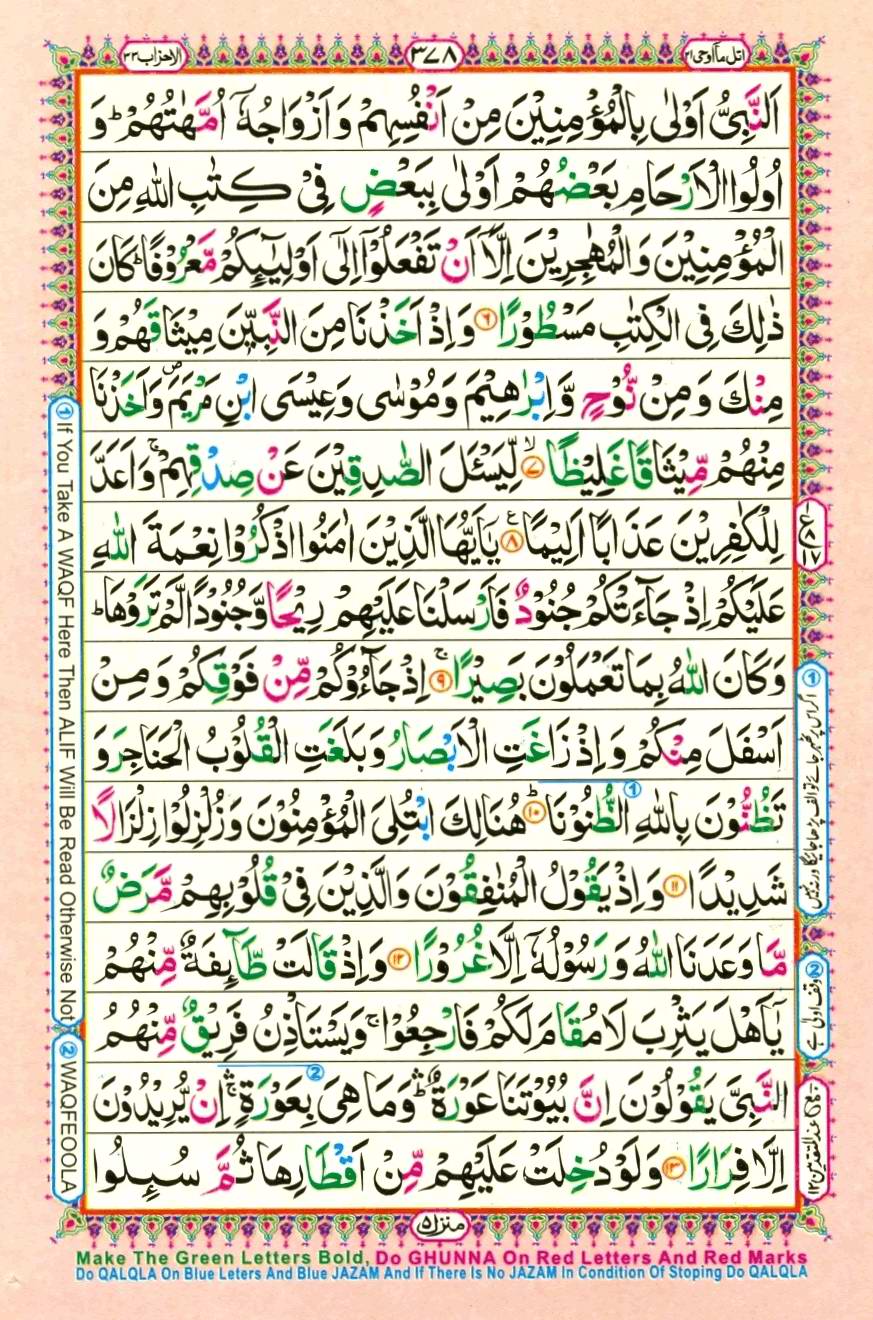 اتل ماۤ اوحی ۲۱
۳۷۸
الاحزاب ۳۳
اَلنَّبِیُّ اَوْلٰی بِالْمُؤْمِنِیْنَ مِنْ اَنْفُسِهِمْ وَ اَزْوَاجُهٗۤ اُمَّهٰتُهُمْ ؕ وَ
اُولُوا الْاَرْحَامِ بَعْضُهُمْ اَوْلٰی بِبَعْضٍ فِیْ كِتٰبِ اللّٰهِ مِنَ
الْمُؤْمِنِیْنَ وَ الْمُهٰجِرِیْنَ اِلَّاۤ اَنْ تَفْعَلُوْۤا اِلٰۤی اَوْلِیٰٓىِٕكُمْ مَّعْرُوْفًا ؕ كَانَ
ذٰلِكَ فِی الْكِتٰبِ مَسْطُوْرًا ۶ وَ اِذْ اَخَذْنَا مِنَ النَّبِیّٖنَ مِیْثَاقَهُمْ وَ
مِنْكَ وَ مِنْ نُّوْحٍ وَّ اِبْرٰهِیْمَ وَ مُوْسٰی وَ عِیْسَی ابْنِ مَرْیَمَ ۪ وَ اَخَذْنَا
مِنْهُمْ مِّیْثَاقًا غَلِیْظًا ۷ لِّیَسْـَٔلَ الصّٰدِقِیْنَ عَنْ صِدْقِهِمْ ۚ وَ اَعَدَّ
لِلْكٰفِرِیْنَ عَذَابًا اَلِیْمًا ۸ یٰۤاَیُّهَا الَّذِیْنَ اٰمَنُوا اذْكُرُوْا نِعْمَةَ اللّٰهِ
عَلَیْكُمْ اِذْ جَآءَتْكُمْ جُنُوْدٌ فَاَرْسَلْنَا عَلَیْهِمْ رِیْحًا وَّ جُنُوْدًا لَّمْ تَرَوْهَا ؕ
وَ كَانَ اللّٰهُ بِمَا تَعْمَلُوْنَ بَصِیْرًا ۹ اِذْ جَآءُوْكُمْ مِّنْ فَوْقِكُمْ وَ مِنْ
اَسْفَلَ مِنْكُمْ وَ اِذْ زَاغَتِ الْاَبْصَارُ وَ بَلَغَتِ الْقُلُوْبُ الْحَنَاجِرَ وَ
تَظُنُّوْنَ بِاللّٰهِ الظُّنُوْنَا ۱۰ هُنَالِكَ ابْتُلِیَ الْمُؤْمِنُوْنَ وَ زُلْزِلُوْا زِلْزَالًا
شَدِیْدًا ۱۱ وَ اِذْ یَقُوْلُ الْمُنٰفِقُوْنَ وَ الَّذِیْنَ فِیْ قُلُوْبِهِمْ مَّرَضٌ
مَّا وَعَدَنَا اللّٰهُ وَ رَسُوْلُهٗۤ اِلَّا غُرُوْرًا ۱۲ وَ اِذْ قَالَتْ طَّآىِٕفَةٌ مِّنْهُمْ
یٰۤاَهْلَ یَثْرِبَ لَا مُقَامَ لَكُمْ فَارْجِعُوْا ۚ وَ یَسْتَاْذِنُ فَرِیْقٌ مِّنْهُمُ
النَّبِیَّ یَقُوْلُوْنَ اِنَّ بُیُوْتَنَا عَوْرَةٌ ۛؕ وَ مَا هِیَ بِعَوْرَةٍ ۛۚ اِنْ یُّرِیْدُوْنَ
اِلَّا فِرَارًا ۱۳ وَ لَوْ دُخِلَتْ عَلَیْهِمْ مِّنْ اَقْطَارِهَا ثُمَّ سُىِٕلُوا
منزل ۵
①If You Take A WAQF Here Then ALIF Will Be Read Otherwise Not
②WAQFEOOLA
② وقف اولیٰ ہے
Make The Green Letters Bold, Do GHUNNA On Red Letters And Red Marks
Do QALQLA On Blue Leters And Blue JAZAM And If There Is No JAZAM In Condition Of Stoping Do QALQLA